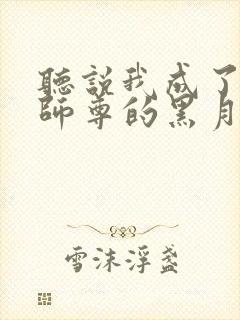 聽說我成了
師尊的黑月
雪沫浮盞